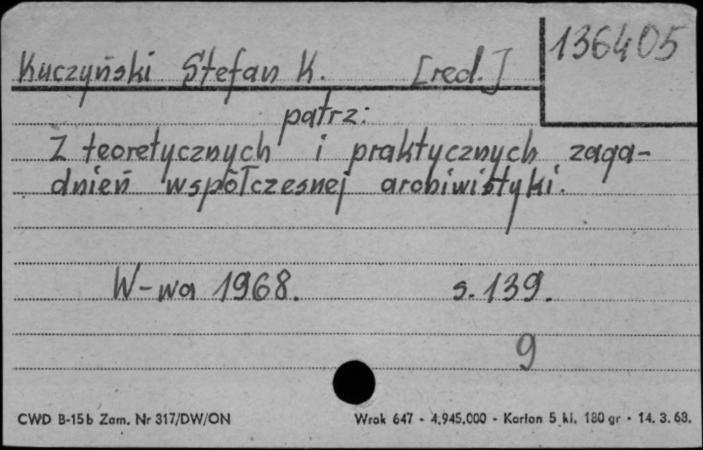 136405
Kuczyński Stefan K. [red.]
patrz:
Z teoretycznych i praktycznych zaga-
dnień współczesnej archiwistyki.
W-wa 1968. s. 139.
9
CWD B-15b Zam. Nr 317/DW/ON Wrok 647 - 4.945.000 - Karton 5 kl. 180 gr - 14. 3. 68.